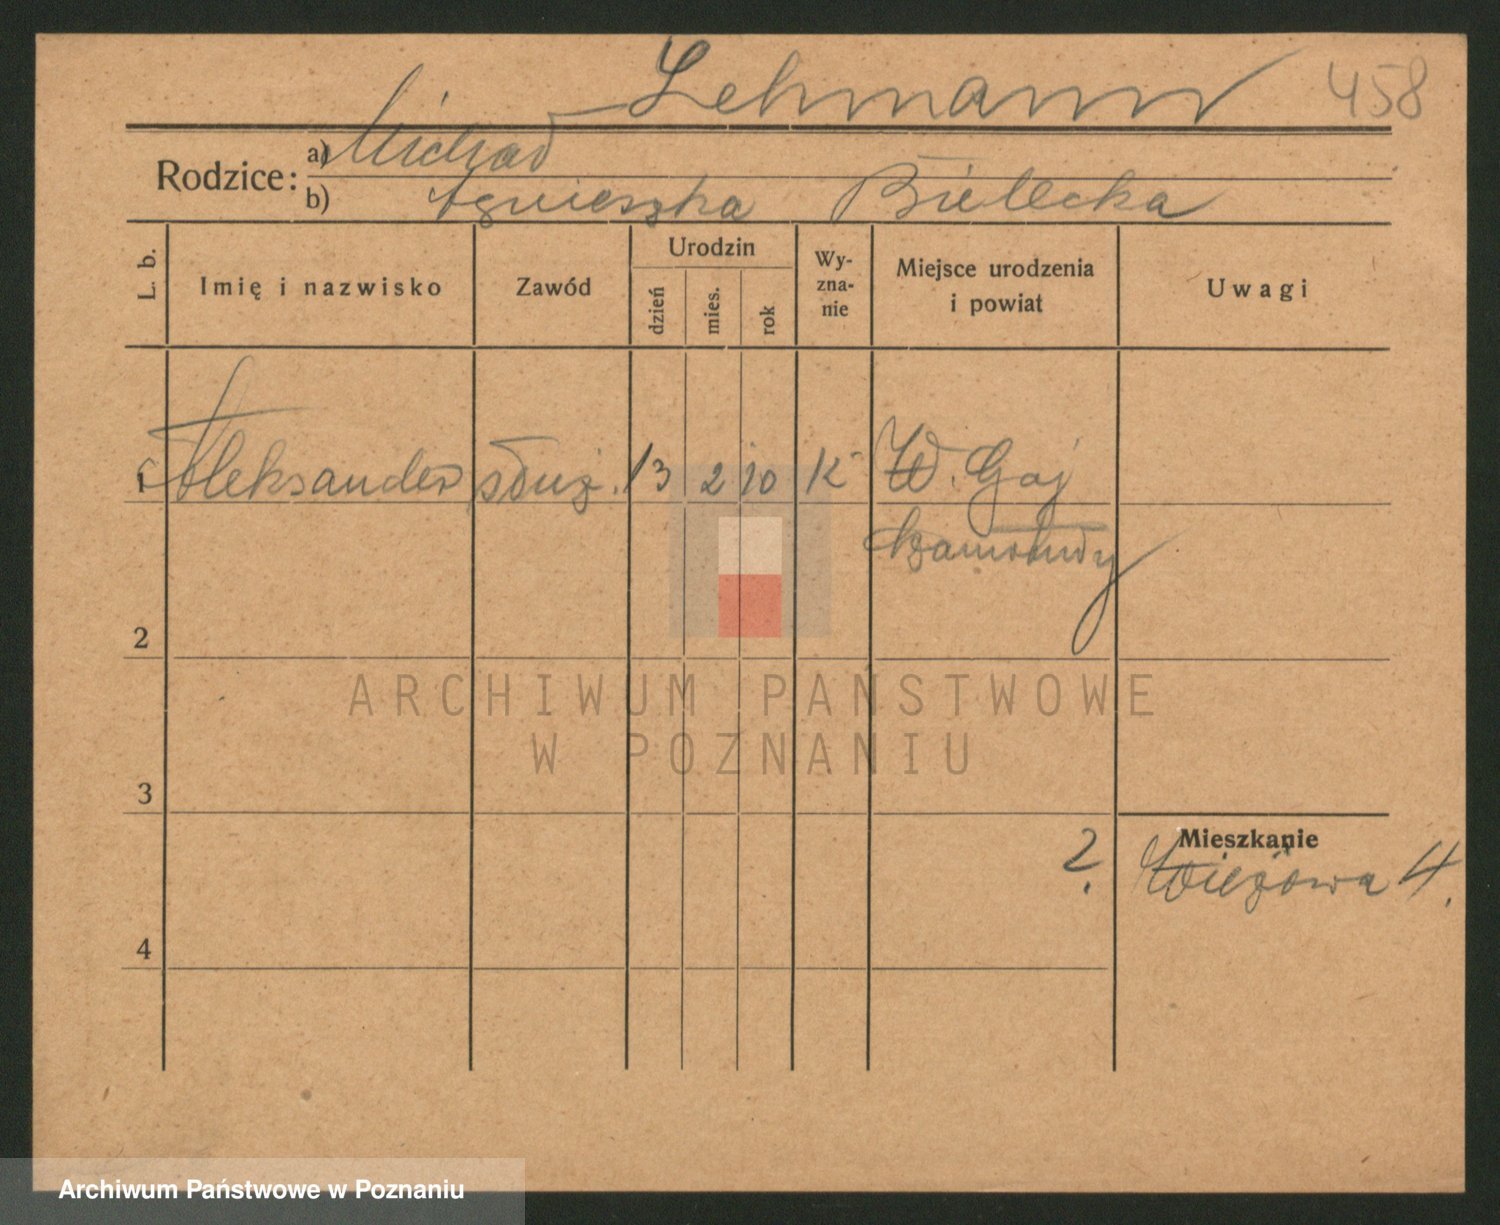 Lehmann 458
Rodzice: a) Michał
b) Agnieszka Bielecka
L. b.
Imię i nazwisko
Zawód
Urodzin
dzień
mies.
rok
Wy-
zna-
nie
Miejsce urodzenia
i powiat
Uwagi
1 Aleksander służ. 13 2 10 K W. Gaj
Szamotuły
2
ARCHIWUM PAŃSTWOWE
W POZNANIU
3
Mieszkanie
2. Wieżowa 4.
4
Archiwum Państwowe w Poznaniu